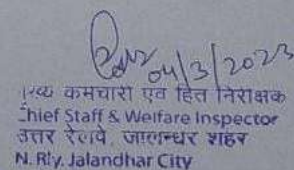 04/3/2023
कर्मचारी एवं हित निरीक्षक
Chief Staff & Welfare Inspector
उत्तर रेलवे, जालन्धर शहर
N. Rly. Jalandhar City